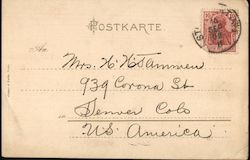 POSTKARTE.
An
Mrs. H H Tammen
939 Corona St
Denver Colo
US. America